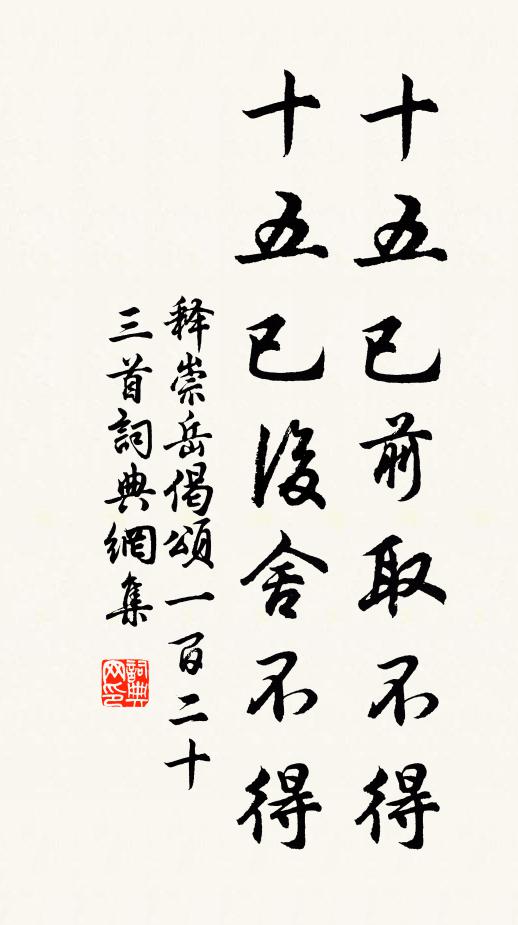 十五已前取不得
十五已後舍不得
释崇岳偈頌一百二十
三首詞典網集
詞典网印